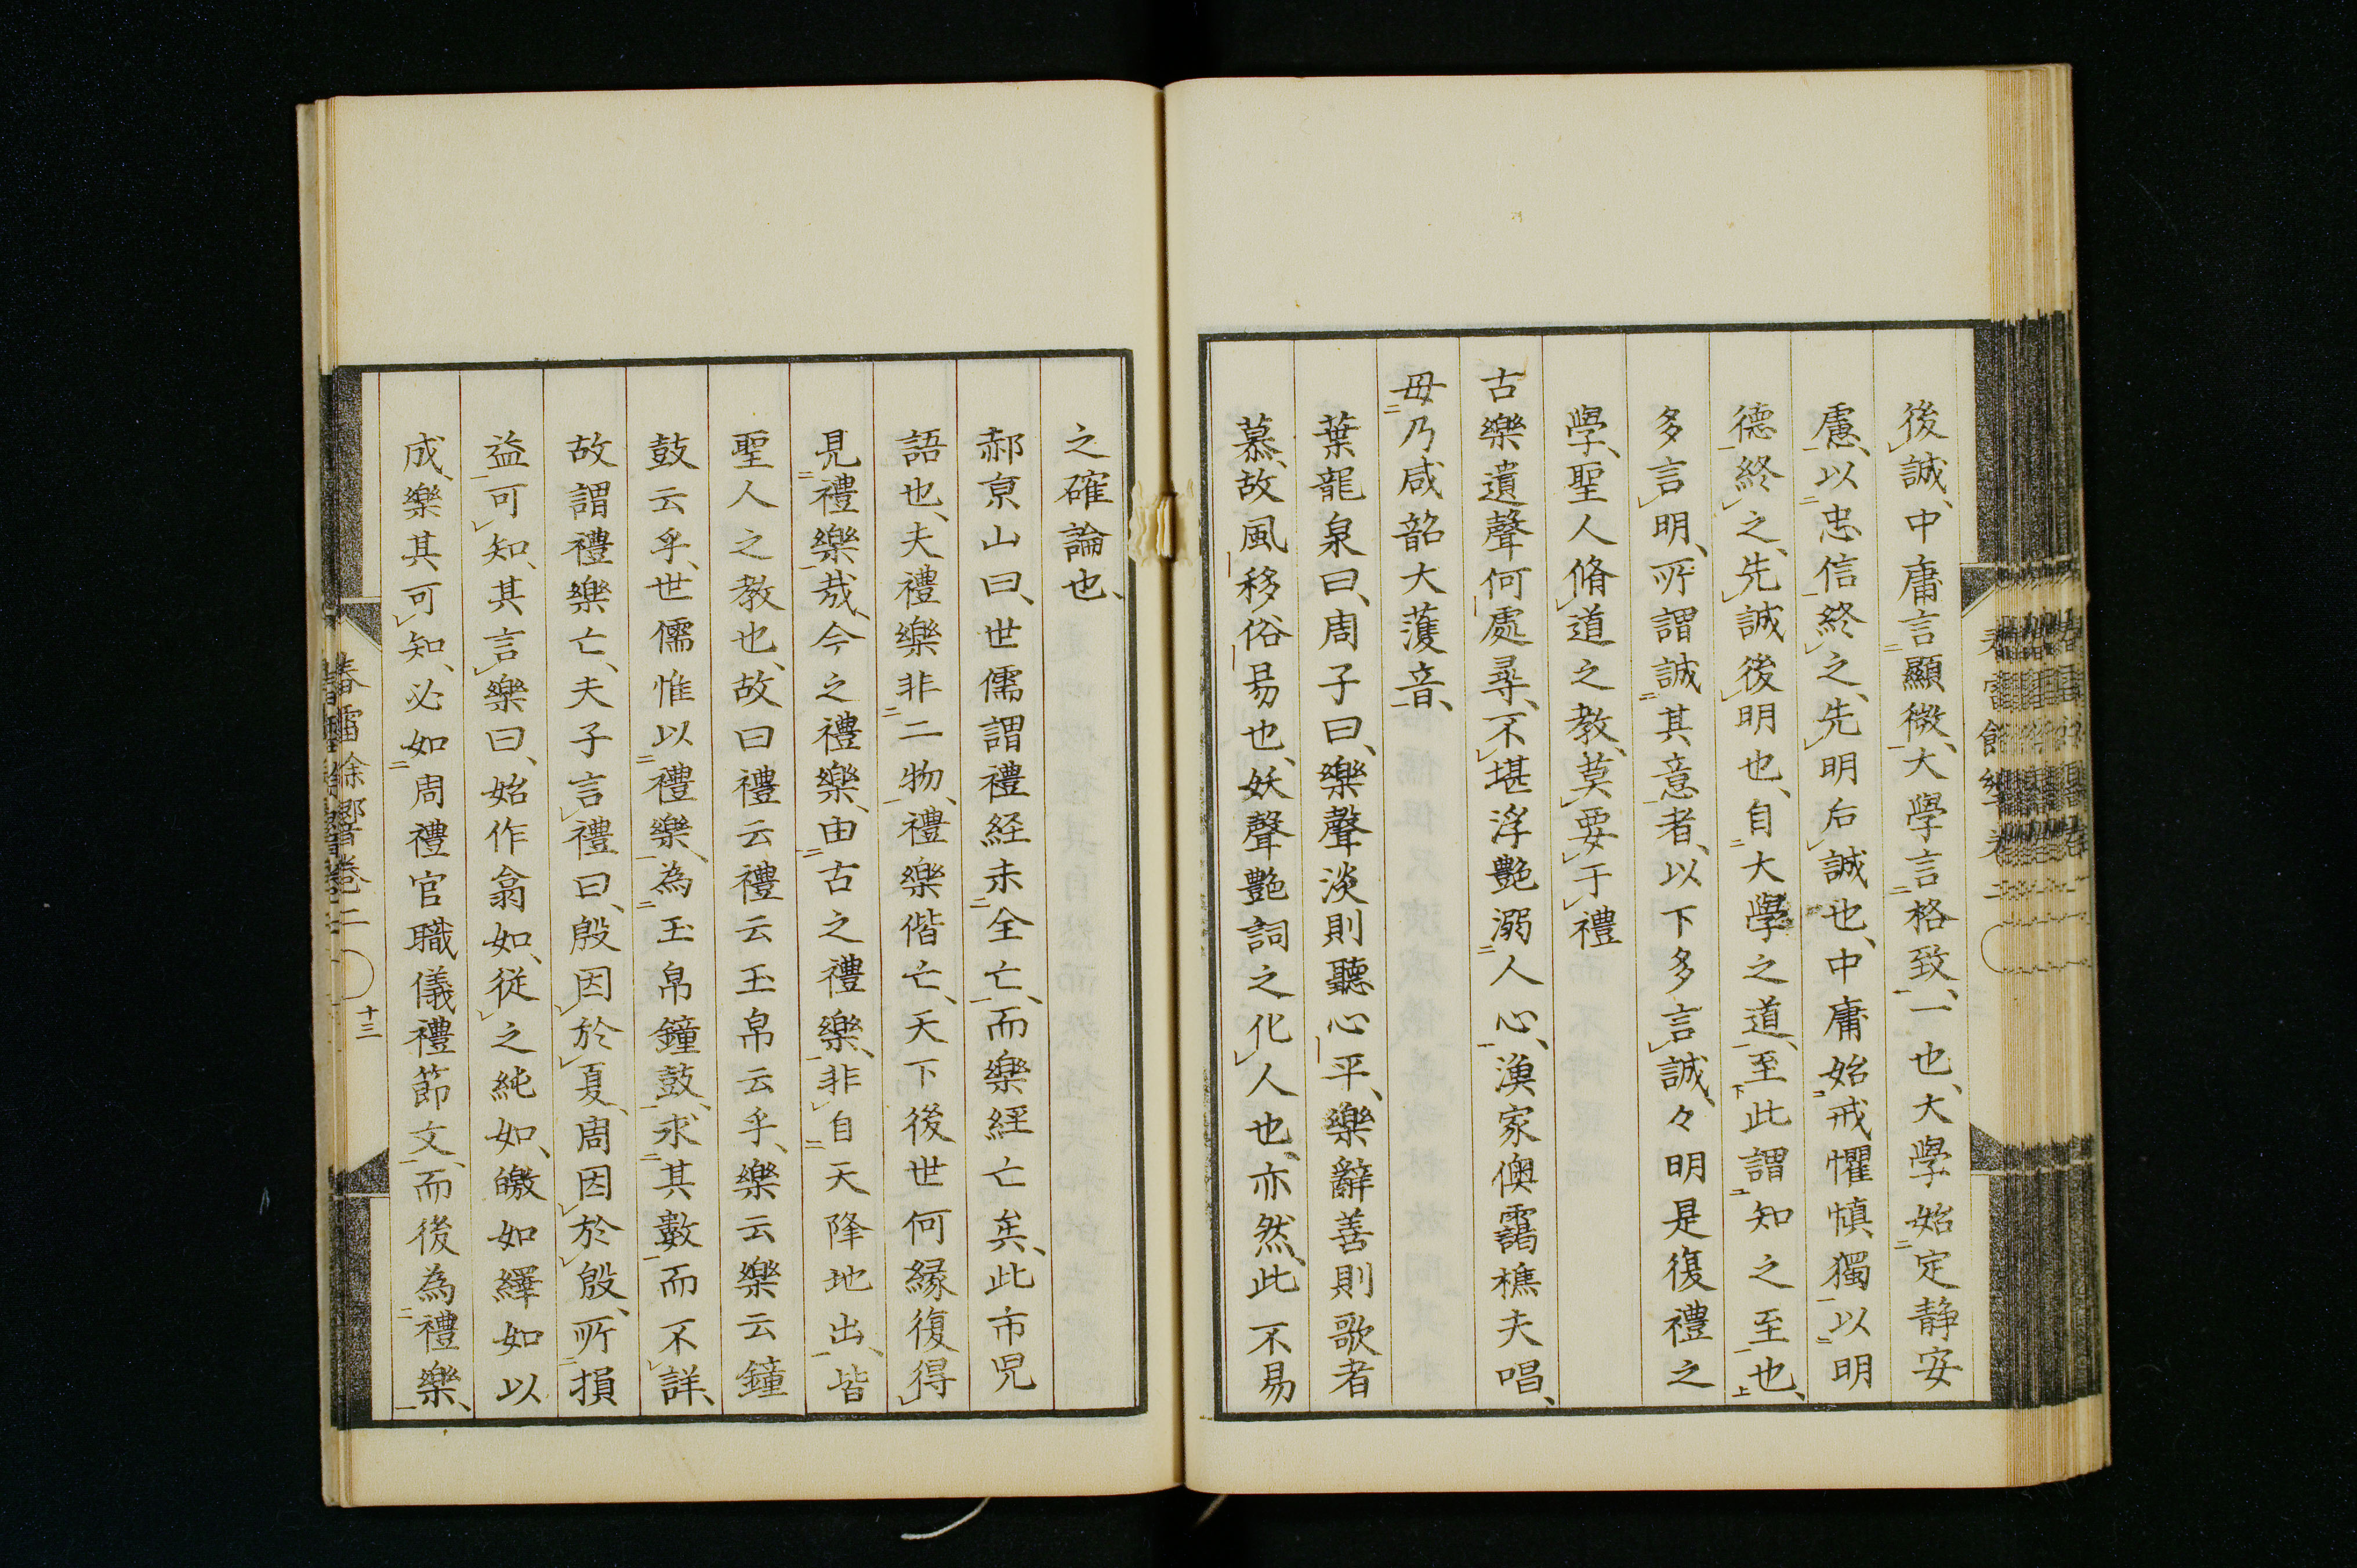 後誠、中庸言顯微、大學言格致、一也、大學始定静安
慮、以忠信終之、先明后誠也、中庸始戒懼慎獨以明
德終之、先誠後明也、自大學之道、至此謂知之至也、
多言明、所謂誠其意者、以下多言誠、々明是復禮之
學、聖人脩道之教、莫要于禮
古樂遺聲何處尋、不堪浮艷溺人心、漁家傴靄樵夫唱、
毋乃咸韶大䕶音、
葉龍泉曰、周子曰、樂聲淡則聽心平、樂辭善則歌者
慕、故風移俗易也、妖聲艷詞之化人也、亦然、此不易
之確論也、
郝京山曰、世儒謂禮経未全亡、而樂経亡矣、此市児
語也、夫禮樂非二物、禮樂偕亡、天下後世何縁復得
見禮樂哉、今之禮樂、由古之禮樂、非自天降地出、皆
聖人之教也、故曰禮云禮云玉帛云乎、樂云樂云鐘
鼓云乎、世儒惟以禮樂、為玉帛鐘鼓、求其數而不詳、
故謂禮樂亡、夫子言禮曰、殷因於夏、周因於殷、所損
益可知、其言樂曰、始作翕如、従之純如、皦如繹如以
成、樂其可知、必如周禮官職儀禮節文、而後為禮樂、
十三